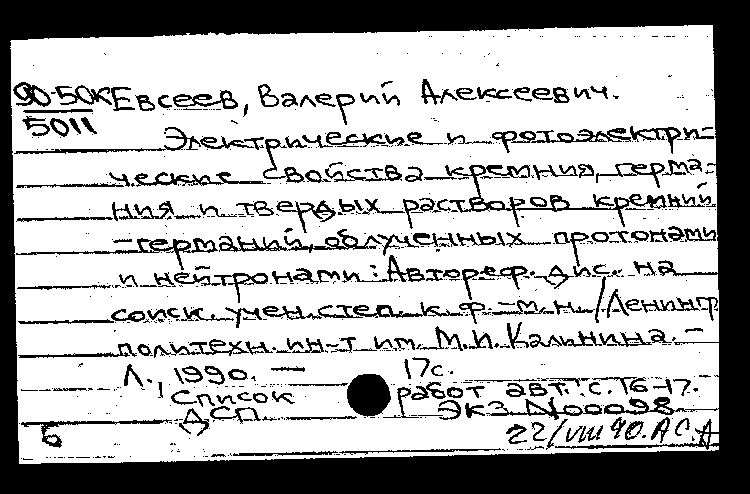 90-50К Евсеев, Валерий Алексеевич.
5011
Электрические и фотоэлектри-
ческие свойства кремния, герма-
ния и твердых растворов кремний
-германий, облученных протонами
и нейтронами: Автореф. дис. на
соиск. учен. степ. к. ф.-м. н. /Ленингр.
политехн. ин-т им. М. И. Калинина. -
Л., 1990. - 17с.
Список работ авт.: с. 16-17.
ДСП Экз. N00098
б 22/VIII 90. А С. Д